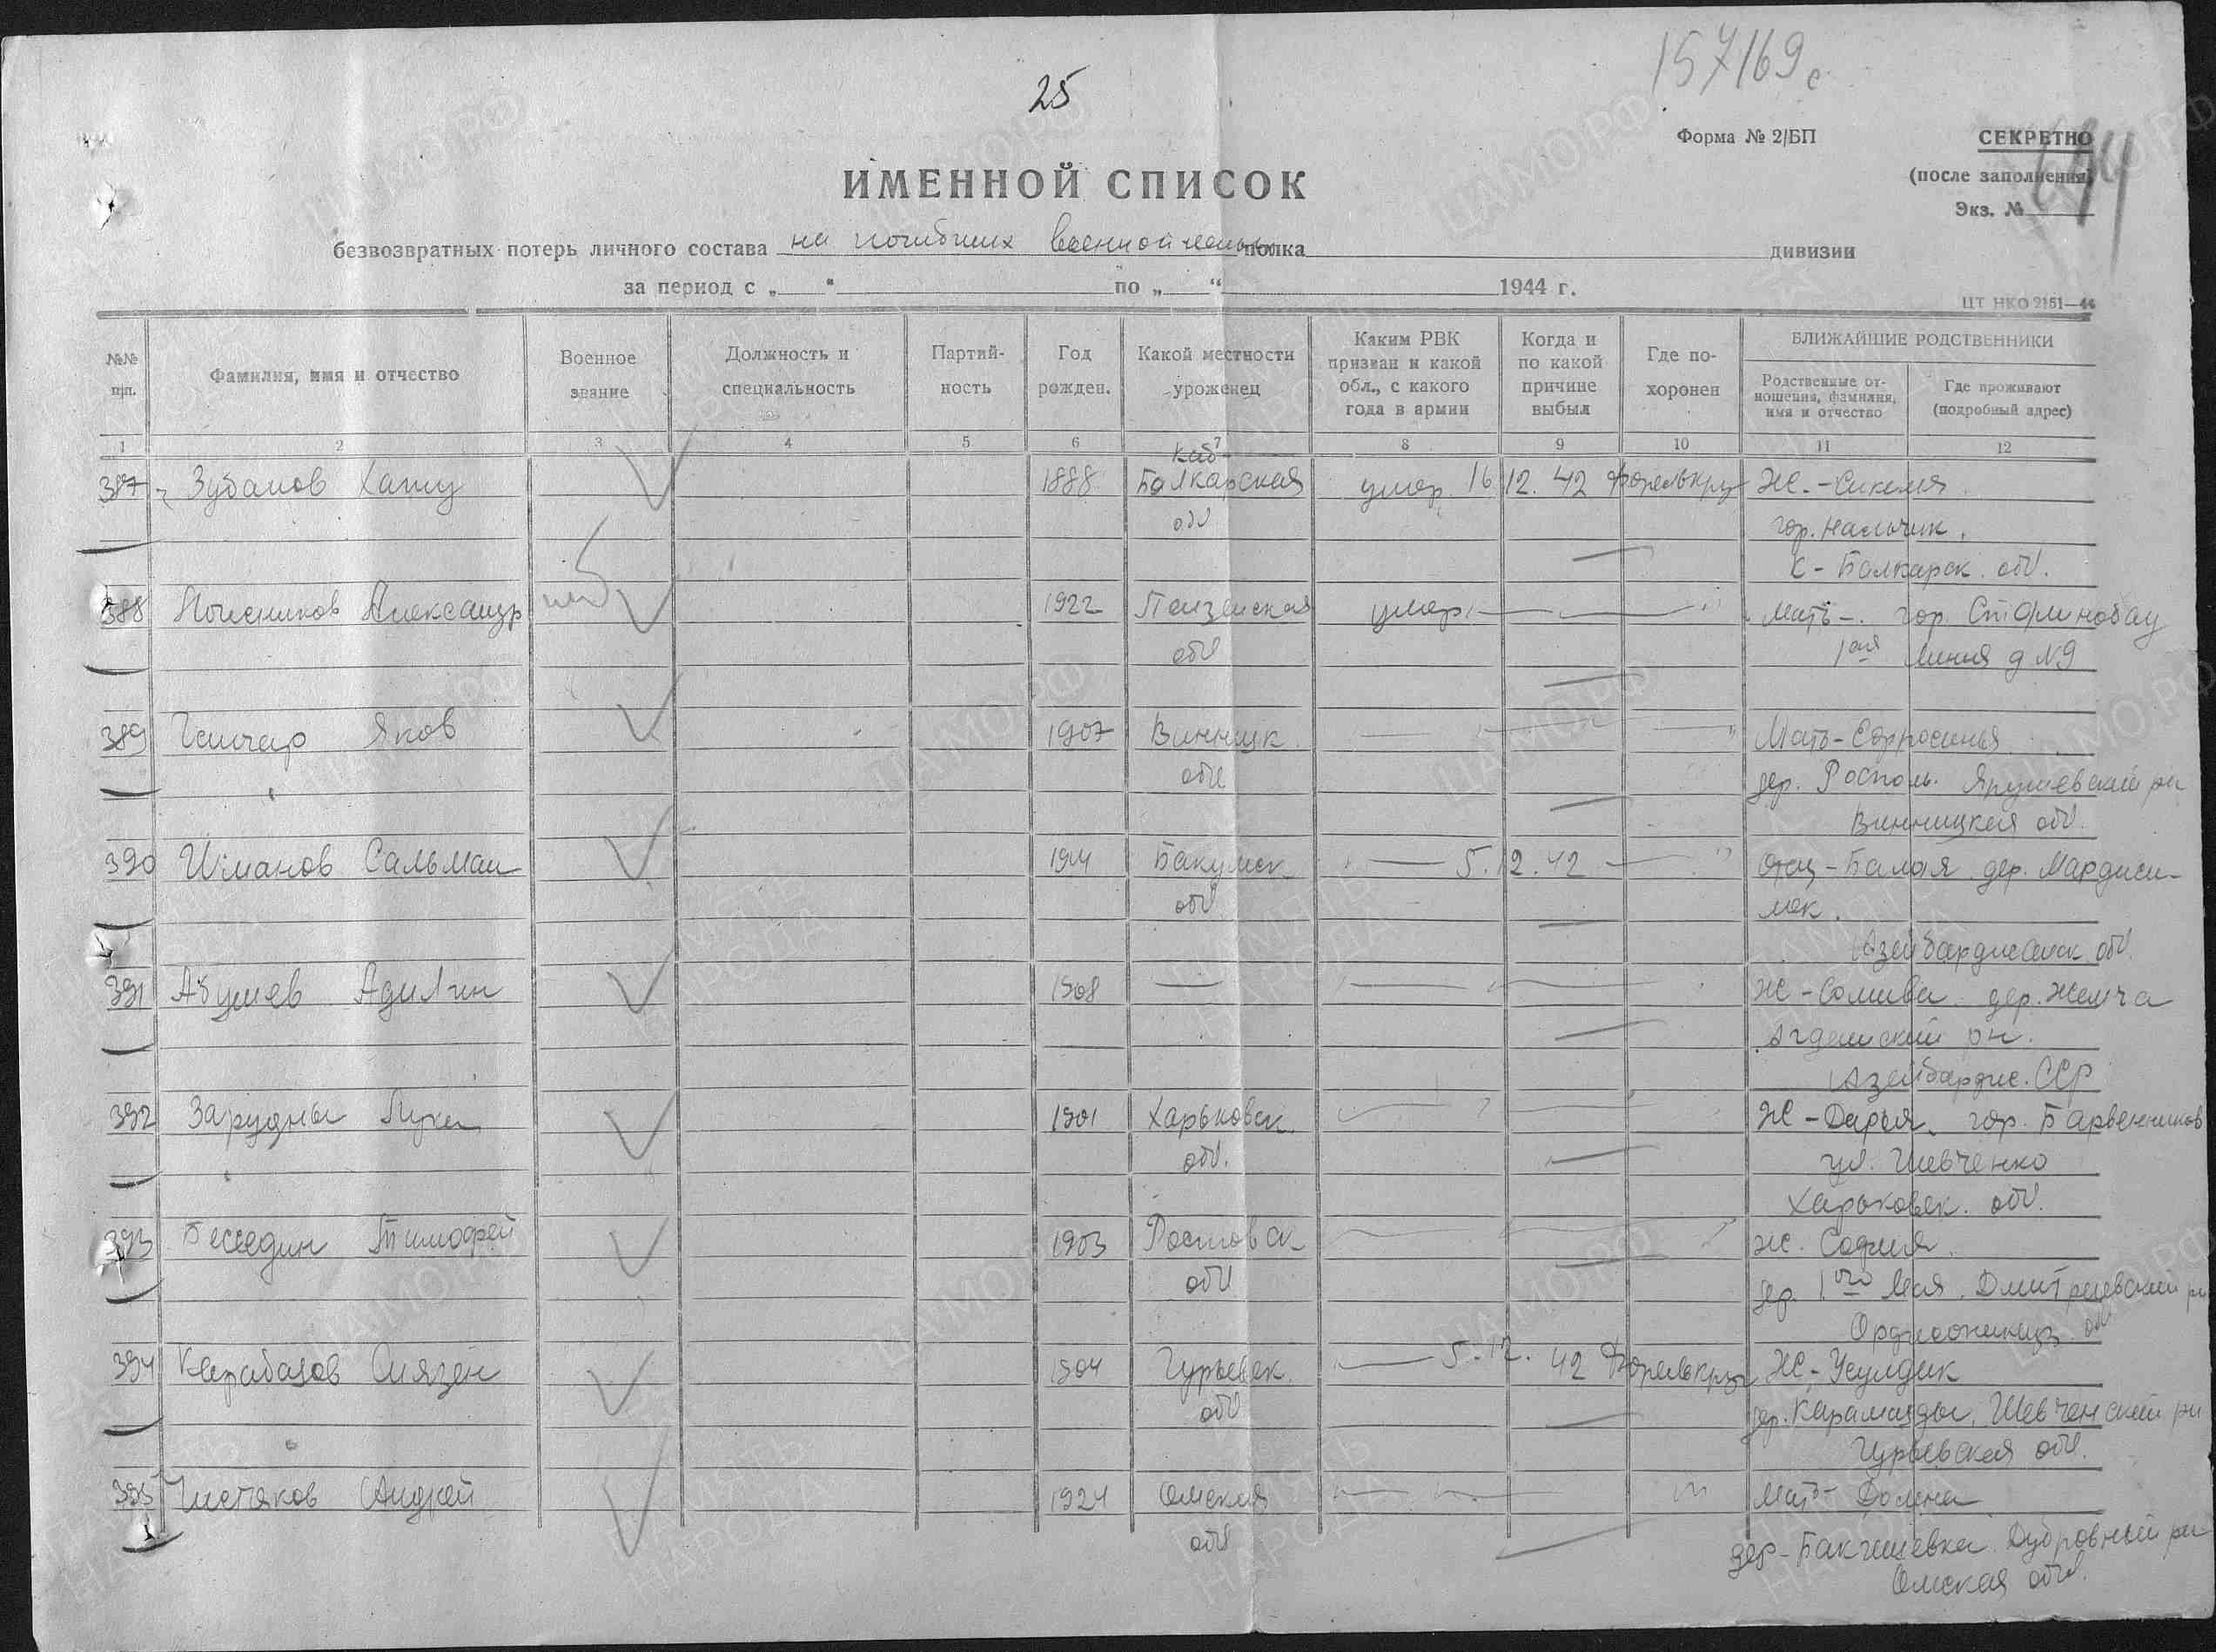 157169с
25
Форма № 2/БП
СЕКРЕТНО
(после заполнения)
Экз. №
ИМЕННОЙ СПИСОК
безвозвратных потерь личного состава на погибших военнопленных полка дивизии
за период с „ “ по „ “ 1944 г.
ЦТ НКО 2151—44
№№ п/п.
Фамилия, имя и отчество
Военное звание
Должность и специальность
Партий-
ность
Год рожден.
Какой местности уроженец
Каким РВК призван и какой обл., с какого года в армии
Когда и по какой причине выбыл
Где по-
хоронен
БЛИЖАЙШИЕ РОДСТВЕННИКИ
Родственные от-
ношения, фамилия, имя и отчество
Где проживают (подробный адрес)
1 2 3 4 5 6 7 8 9 10 11 12
Каб-
387 Зубанов 1888 Балкарская умер. 16 12. 42 Форелькруг Ж.-
обл гор. Нальчик.
К-Балкарск. обл.
388 Александр 1922 Пензенская умер. Мать-. гор. Сталинобад
обл 1ая линия д №9
389 Яков 1907 Винницк Мать-Ефросинья
обл дер. Росполь. Ярушевский рн
Винницкая обл.
390 Иманов Сальман 1914 Бакинск 5.12.42 Отец-Балая дер. Мардиси-
обл
Азейбарджанск. обл.
391 Адилгин 1908 Ж-Солива. дер. Жемча
Агдамский рн.
Азейбардж. ССР
392 Зарудны Лука 1901 Харьковск. Ж-Дарья. гор. Барвенников
обл. ул. Шевченко
Харьковск. обл.
393 Бесседин Тимофей 1903 Ростовск Ж. София.
обл дер. 1ого Мая. Дмитриевский рн
Орджоникидз. обл
394 Карабазов 1904 Гурьевск. 5.12. 42 Форелькруг Ж-Усулдик
обл дер. Караманды, Шевченский рн
Гурьевская обл.
395 Чистяков Андрей 1924 Омская Мать-
обл дер-Бакшеевка Дубровный рн
Омская обл.